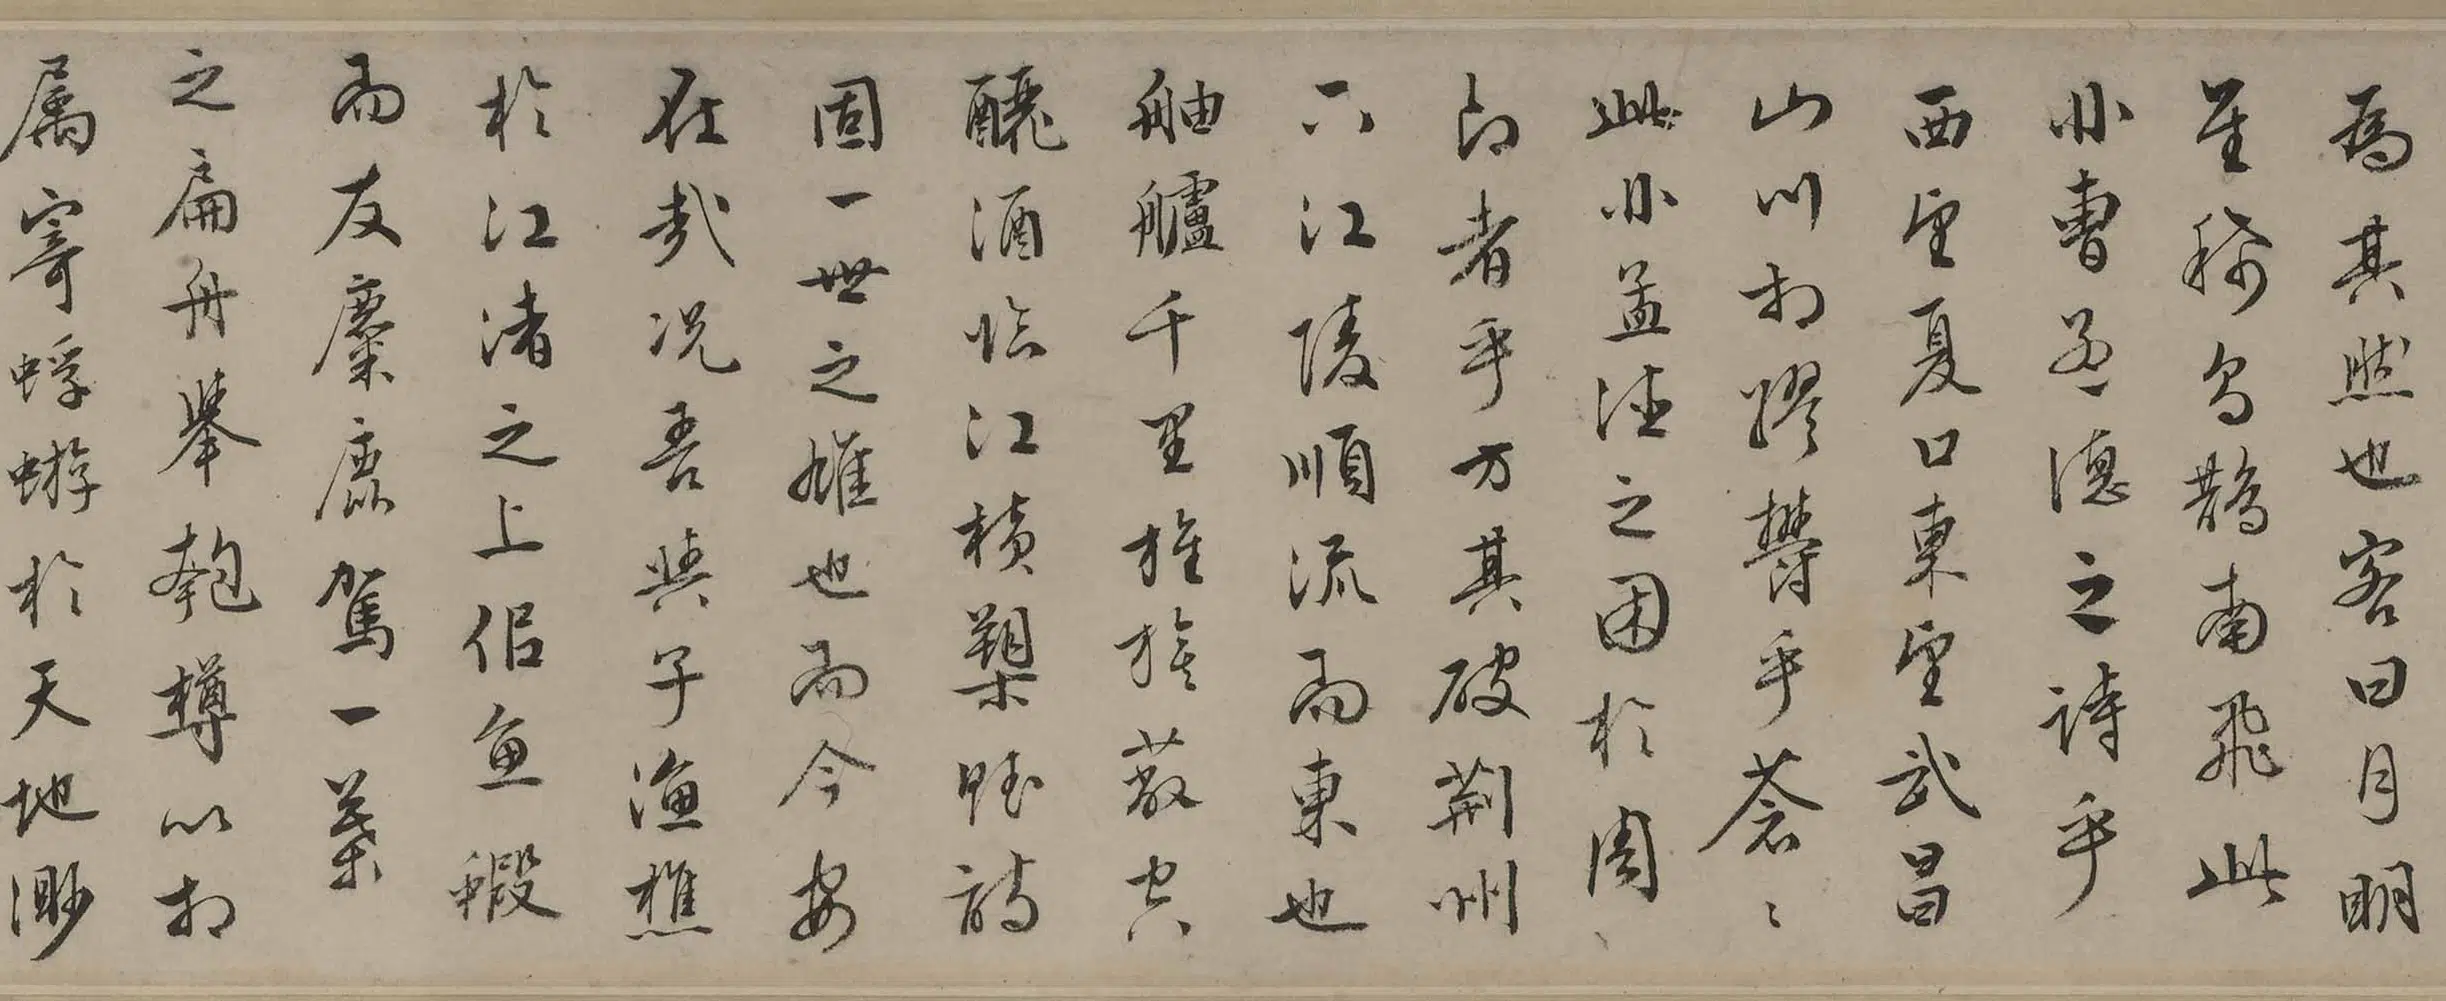 為其然也客曰月明
星稀烏鵲南飛此
非曹孟德之詩乎
西望夏口東望武昌
山川相繆鬱乎蒼〻
此非孟德之困於周
郎者乎方其破荊州
下江陵順流而東也
舳艫千里旌旗蔽空
釃酒臨江橫槊賦詩
固一世之雄也而今安
在哉况吾與子漁樵
於江渚之上侣魚蝦
而友麋鹿駕一葉
之扁舟舉匏樽以相
属寄蜉蝣於天地渺